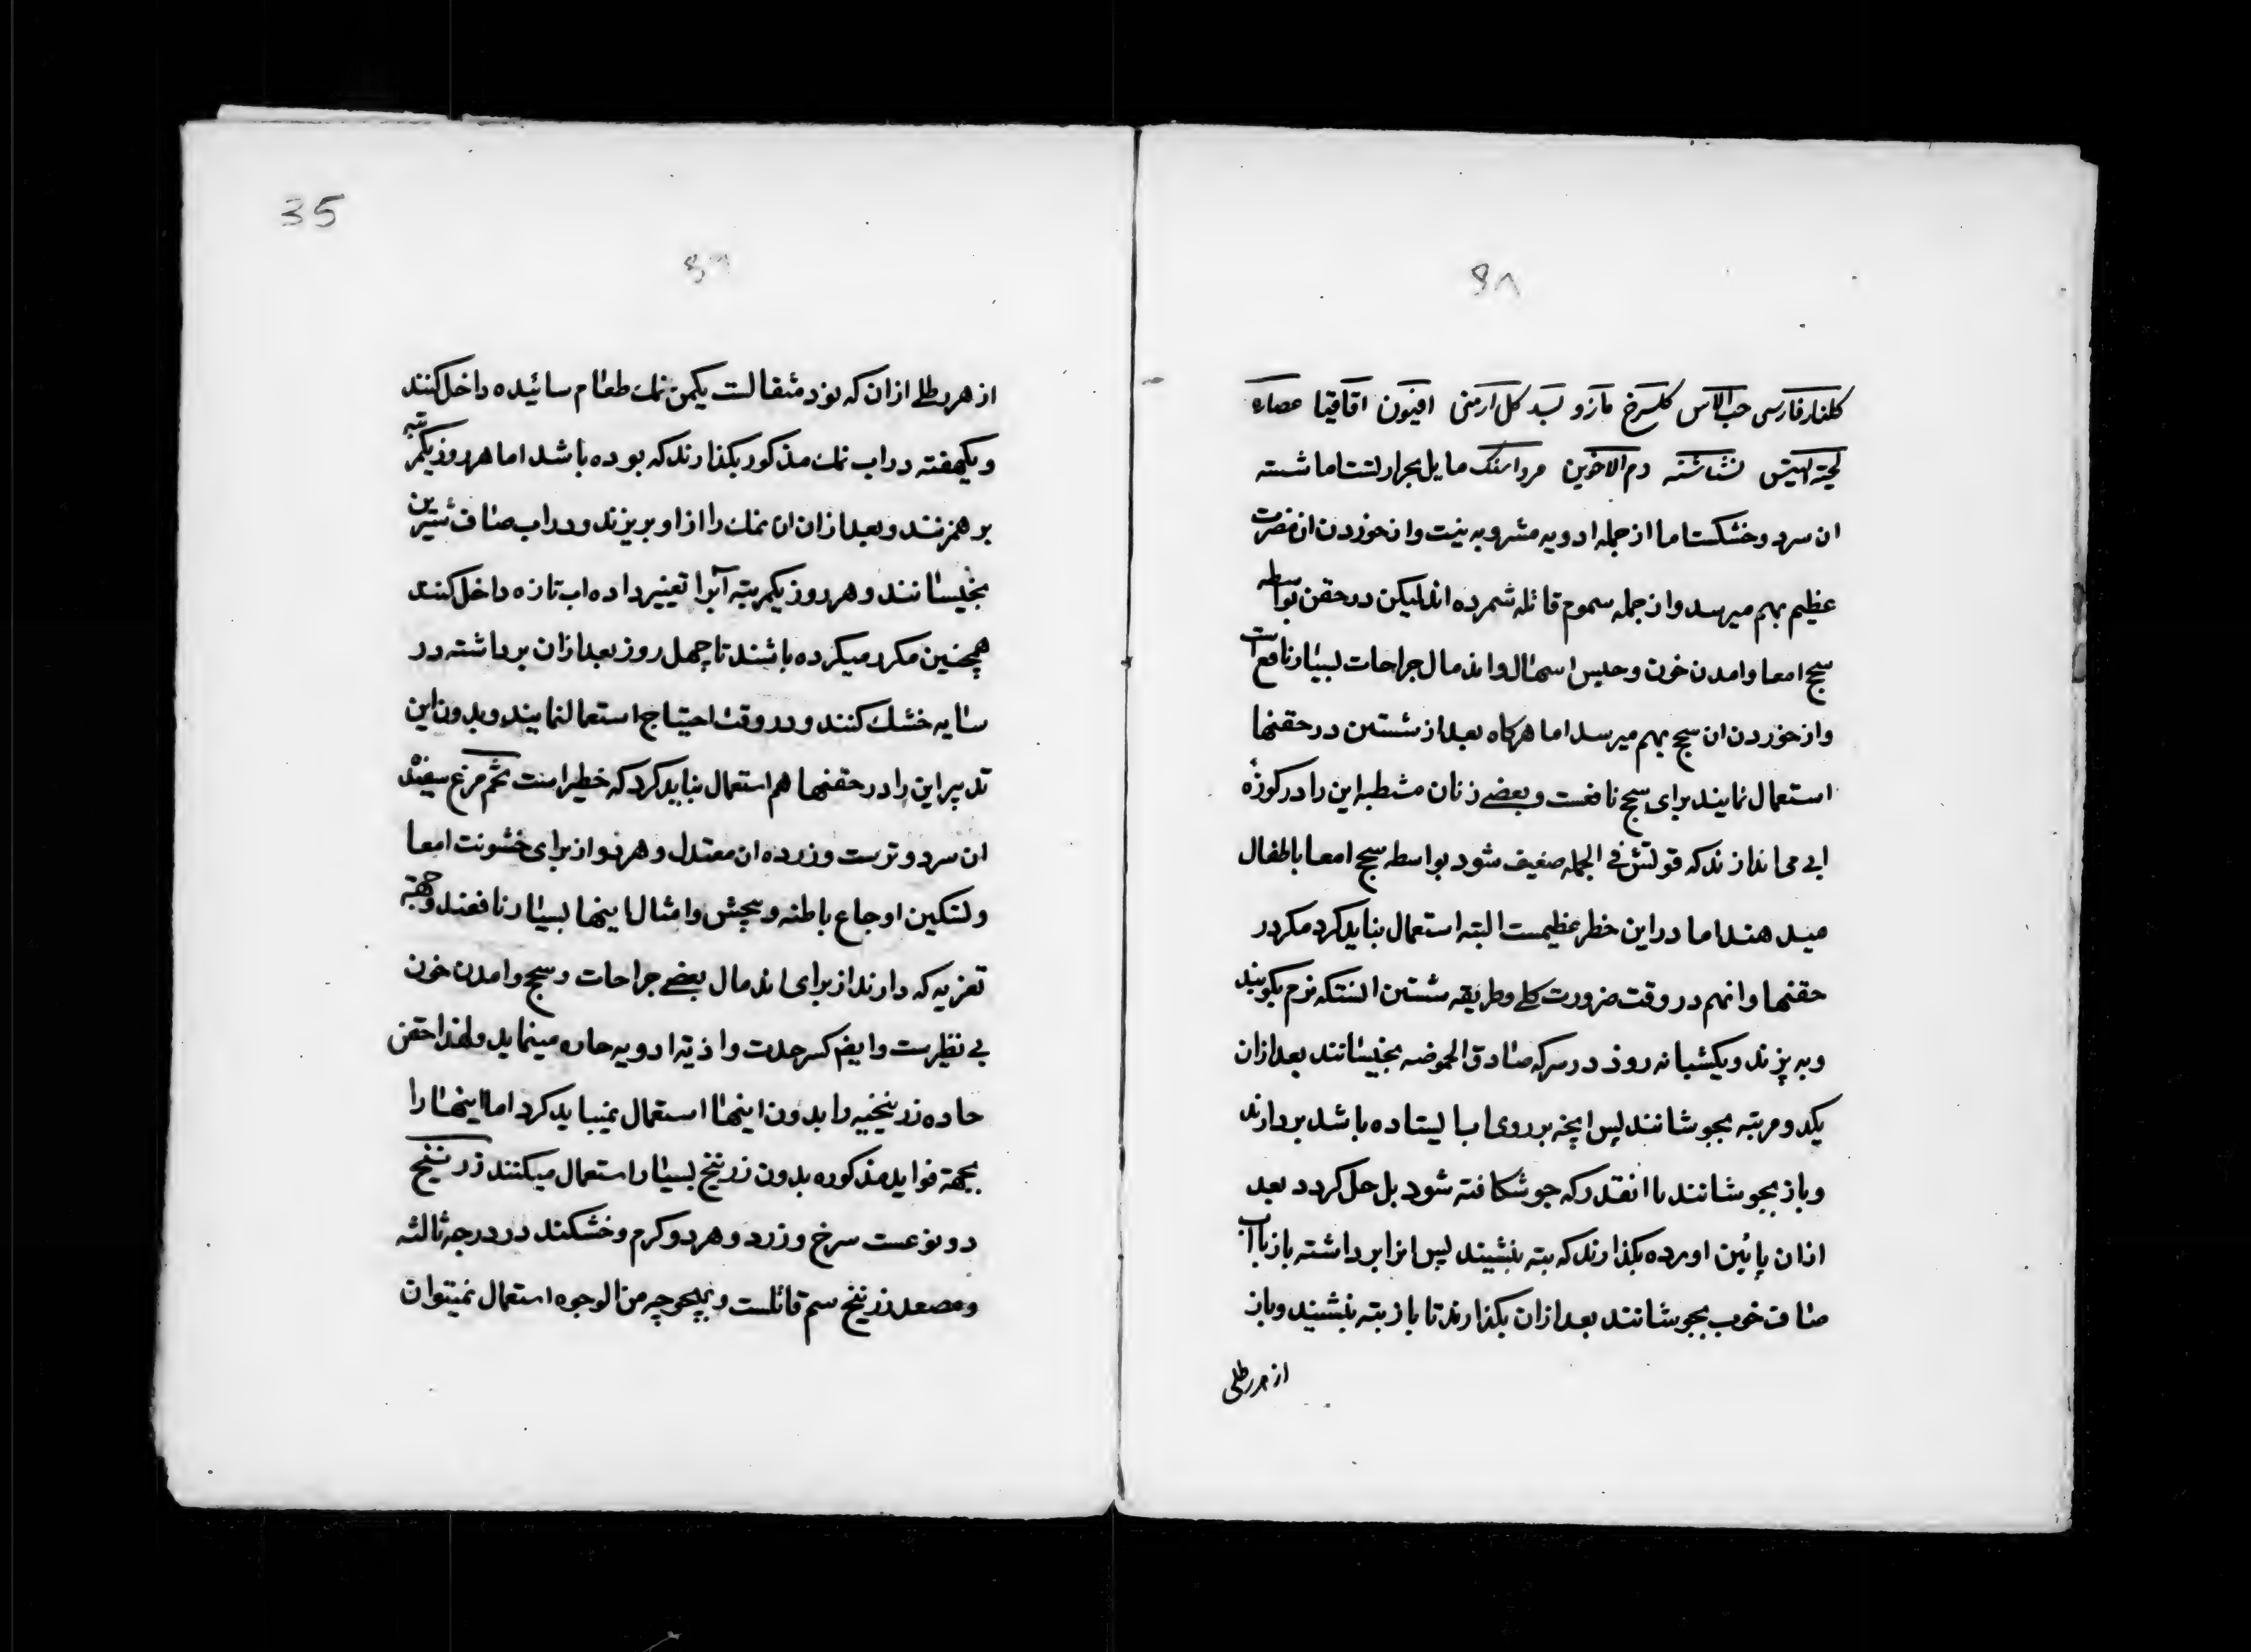 ۶۸
کلنار فارسی حب الاس کلسرخ مازو بسد کل ارمنی افیون اقاقیا عصاره
لحیة التیس نشاشته دم الاخوین مرداسنک مایل بحرارتست اما شسته
ان سرد و خشکست اما از جمله ادویه مشروبه نیست و از خوردن ان مضرت
عظیم بهم میرسد و از جمله سموم قاتله شمرده اند لیکن در حقن بواسطه
سحج امعا و امدن خون و حبس اسهال و اندمال جراحات بسیار نافع است
و از خوردن ان سحج بهم میرسد اما هرکاه بعد از شستن در حقنها
استعمال نمایند برای سحج نافعست و بعضے زنان مشطبه این را در کوزۀ
ابی می اندازند که قوتش فی الجمله ضعیف شود بواسطه سحج امعا باطفال
میدهند اما در این خطر عظیمست البته استعمال نباید کرد مکر در
حقنها و انهم در وقت ضرورت کلے و طریقه شستن انستکه نرم بکوبند
و به پزند و یکشبانه روز در سرکه صادق الحموضه بخیسانند بعد ازان
یکدو مرتبه بجوشانند پس انچه بر روی اب ایستاده باشد بردارند
و باز بجوشانند تا انقدر که جو شکافته شود بل حل کردد بعد
ازان پائین اورده بکذارند که بته بنشیند پس انرا برداشته باز با اب
صاف خوب بجوشانند بعد ازان بکذارند تا باز بته بنشیند و باز
از هر رطلی
35
۶۹
از هر رطلے ازان که نود مثقالست یکمن نمك طعام سائیده داخل کنند
و یکهفته در اب نمك مذکور بکذارند که بوده باشد اما هر روز یکمرتبه
بر همزنند و بعد ازان ان نمك را از او بریزند و در اب صاف شیرین
بخیسانند و هر روز یکمرتبه آنرا تغییر داده اب تازه داخل کنند
همچنین مکرر میکرده باشند تا چهل روز بعد ازان برداشته در
سایه خشك کنند و در وقت احتیاج استعمال نمایند و بدون این
تدبیر این را در حقنها هم استعمال نباید کرد که خطیر است تخم مرغ سفیده
ان سرد و ترست و زرده ان معتدل و هر دو از برای خشونت امعا
و لتکین اوجاع باطنه و پیچش و امثال اینها بسیار نافعند و جهة
تغریه که دارند از برای اندمال بعضے جراحات و سحج و امدن خون
بی نظیرست و ایضم کسر حدت و اذیة ادویه حاره مینماید و لهذا حقن
حاده زرنیخیه را بدون اینها استعمال نمیباید کرد اما اینها را
بجهة فواید مذکوره بدون زرنیخ بسیار استعمال میکنند زرنیخ
دو نوعست سرخ و زرد و هر دو کرم و خشکند در درجه ثالثه
و مصعد زرنیخ سم قاتلست و بهیچوجه من الوجوه استعمال نمیتوان